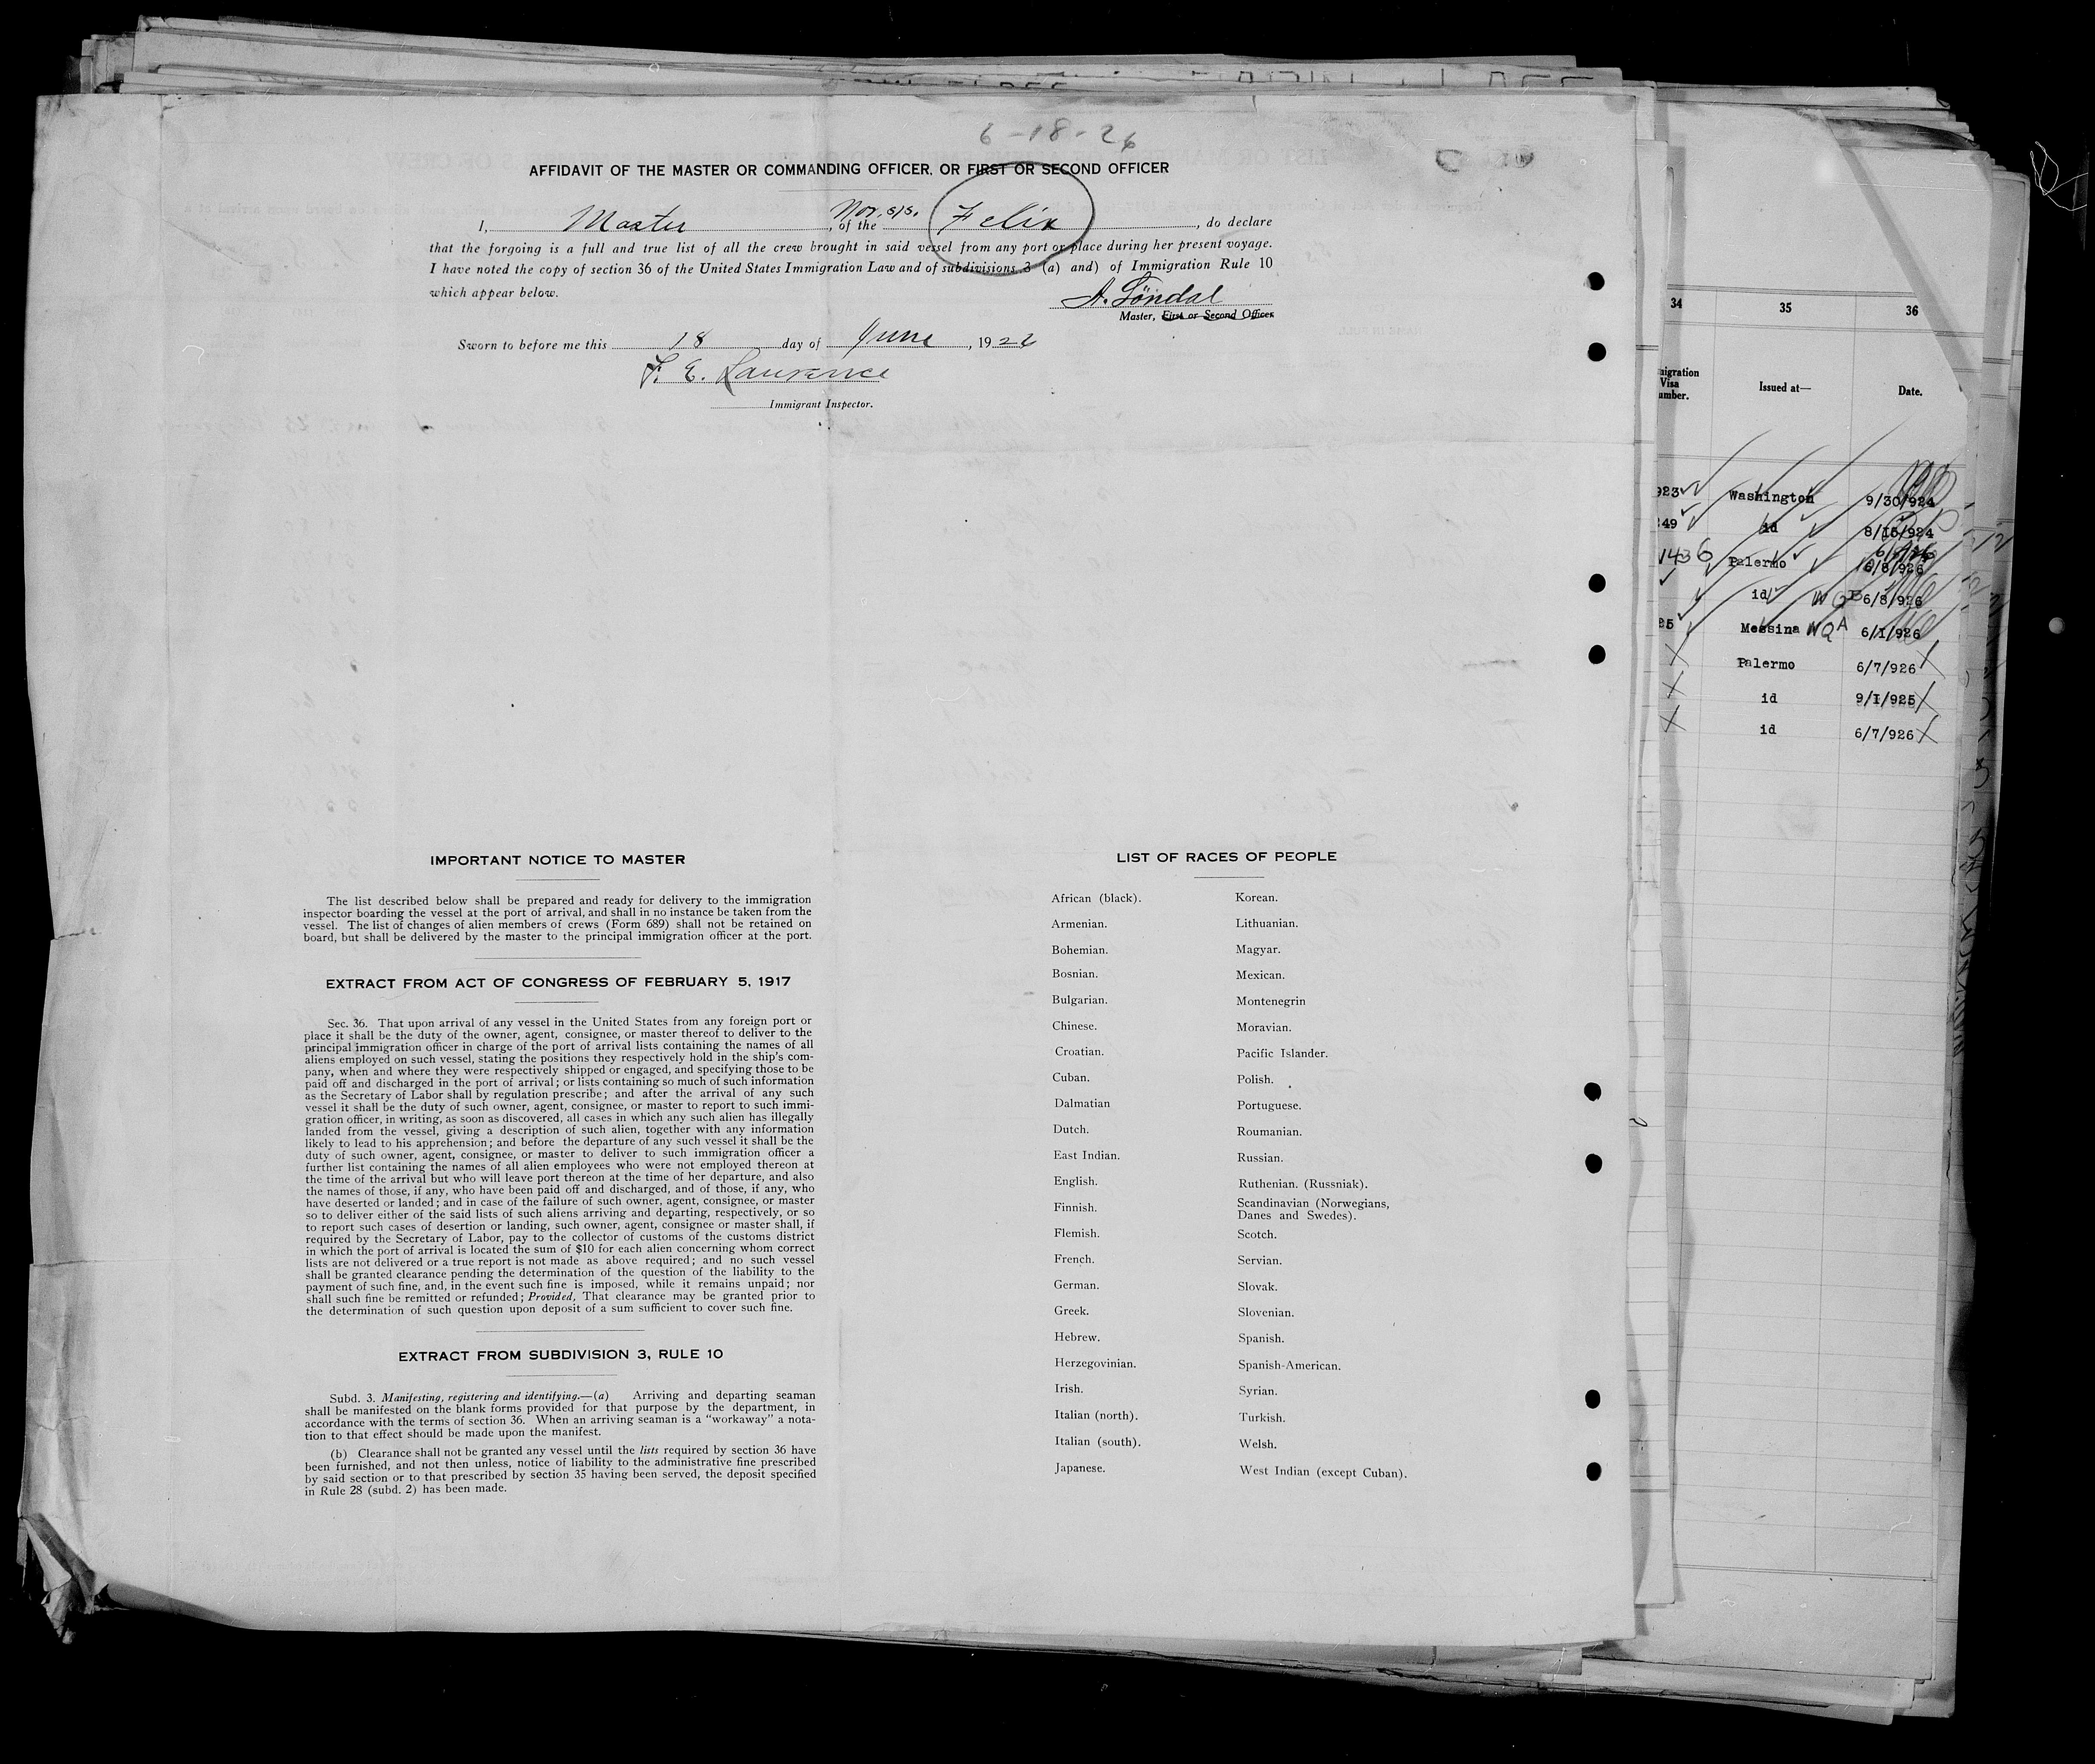 6-18-26
AFFIDAVIT OF THE MASTER OR COMMANDING OFFICER, OR FIRST OR SECOND OFFICER
I, Master, of the Nor. s/s. Felix, do declare
that the forgoing is a full and true list of all the crew brought in said vessel from any port or place during her present voyage.
I have noted the copy of section 36 of the United States Immigration Law and of subdivisions 3 (a) and) of Immigration Rule 10
which appear below.
A. Söndal
Master, First or Second Officer.
Sworn to before me this 18 day of June, 1926
F. E. Laurence
Immigrant Inspector.
IMPORTANT NOTICE TO MASTER
The list described below shall be prepared and ready for delivery to the immigration
inspector boarding the vessel at the port of arrival, and shall in no instance be taken from the
vessel. The list of changes of alien members of crews (Form 689) shall not be retained on
board, but shall be delivered by the master to the principal immigration officer at the port.
EXTRACT FROM ACT OF CONGRESS OF FEBRUARY 5, 1917
Sec. 36. That upon arrival of any vessel in the United States from any foreign port or
place it shall be the duty of the owner, agent, consignee, or master thereof to deliver to the
principal immigration officer in charge of the port of arrival lists containing the names of all
aliens employed on such vessel, stating the positions they respectively hold in the ship's com-
pany, when and where they were respectively shipped or engaged, and specifying those to be
paid off and discharged in the port of arrival; or lists containing so much of such information
as the Secretary of Labor shall by regulation prescribe; and after the arrival of any such
vessel it shall be the duty of such owner, agent, consignee, or master to report to such immi-
gration officer, in writing, as soon as discovered, all cases in which any such alien has illegally
landed from the vessel, giving a description of such alien, together with any information
likely to lead to his apprehension; and before the departure of any such vessel it shall be the
duty of such owner, agent, consignee, or master to deliver to such immigration officer a
further list containing the names of all alien employees who were not employed thereon at
the time of the arrival but who will leave port thereon at the time of her departure, and also
the names of those, if any, who have been paid off and discharged, and of those, if any, who
have deserted or landed; and in case of the failure of such owner, agent, consignee, or master
so to deliver either of the said lists of such aliens arriving and departing, respectively, or so
to report such cases of desertion or landing, such owner, agent, consignee or master shall, if
required by the Secretary of Labor, pay to the collector of customs of the customs district
in which the port of arrival is located the sum of $10 for each alien concerning whom correct
lists are not delivered or a true report is not made as above required; and no such vessel
shall be granted clearance pending the determination of the question of the liability to the
payment of such fine, and, in the event such fine is imposed, while it remains unpaid; nor
shall such fine be remitted or refunded; Provided, That clearance may be granted prior to
the determination of such question upon deposit of a sum sufficient to cover such fine.
EXTRACT FROM SUBDIVISION 3, RULE 10
Subd. 3. Manifesting, registering and identifying.—(a) Arriving and departing seaman
shall be manifested on the blank forms provided for that purpose by the department, in
accordance with the terms of section 36. When an arriving seaman is a "workaway" a nota-
tion to that effect should be made upon the manifest.
(b) Clearance shall not be granted any vessel until the lists required by section 36 have
been furnished, and not then unless, notice of liability to the administrative fine prescribed
by said section or to that prescribed by section 35 having been served, the deposit specified
in Rule 28 (subd. 2) has been made.
LIST OF RACES OF PEOPLE
African (black).
Armenian.
Bohemian.
Bosnian.
Bulgarian.
Chinese.
Croatian.
Cuban.
Dalmatian
Dutch.
East Indian.
English.
Finnish.
Flemish.
French.
German.
Greek.
Hebrew.
Herzegovinian.
Irish.
Italian (north).
Italian (south).
Japanese.
Korean.
Lithuanian.
Magyar.
Mexican.
Montenegrin
Moravian.
Pacific Islander.
Polish.
Portuguese.
Roumanian.
Russian.
Ruthenian. (Russniak).
Scandinavian (Norwegians,
Danes and Swedes).
Scotch.
Servian.
Slovak.
Slovenian.
Spanish.
Spanish-American.
Syrian.
Turkish.
Welsh.
West Indian (except Cuban).
34 35 36
Visa
Issued at— Date.
923 Washington 9/30/924
49 id 8/15/924
1436 Palermo 6/8/926
id 6/8/926
25 Messina NQA 6/1/926
Palermo 6/7/926
id 9/1/925
id 6/7/926